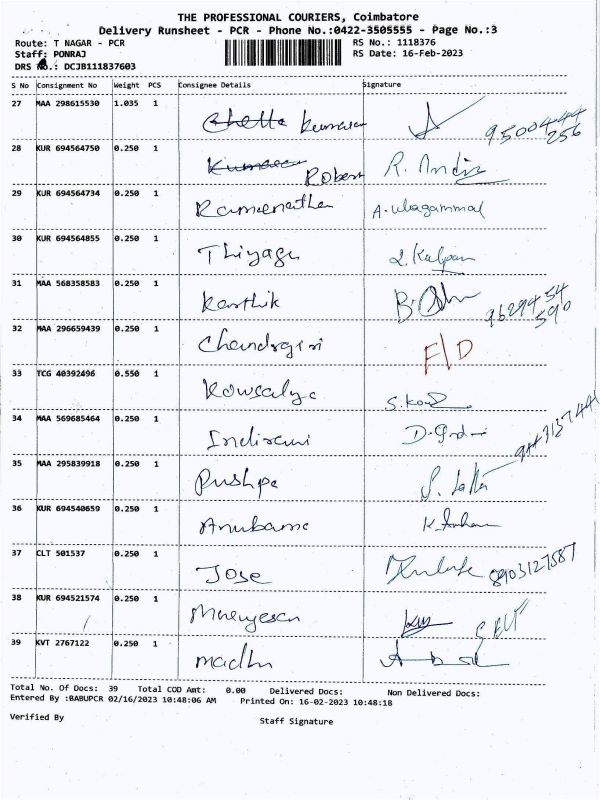 THE PROFESSIONAL COURIERS, Coimbatore
Delivery Runsheet - PCR - Phone No.:0422-3505555 - Page No.:3
Route: T NAGAR - PCR RS No.: 1118376
Staff: PONRAJ RS Date: 16-Feb-2023
DRS No.: DCJB111837603
S No Consignment No Weight PCS Consignee Details Signature
27 MAA 298615530 1.035 1 Kumaran 95004444
256
28 KUR 694564750 0.250 1 Robert R. Andis
29 KUR 694564734 0.250 1 Ramanathan A. Ulagammal
30 KUR 694564855 0.250 1 Thiyagu
31 MAA 568358583 0.250 1 Karthik 9629454
590
32 MAA 296659439 0.250 1 Chandrgiri F/D
33 TCG 40392496 0.550 1 Kowsalya
34 MAA 569685464 0.250 1 Indirani
35 MAA 295839918 0.250 1 Pushpa S. Latha
36 KUR 694540659 0.250 1 Anubama
37 CLT 501537 0.250 1 Jose 8903127587
38 KUR 694521574 0.250 1 Murugesan
39 KVT 2767122 0.250 1 madhu
Total No. Of Docs: 39 Total COD Amt: 0.00 Delivered Docs: Non Delivered Docs:
Entered By :BABUPCR 02/16/2023 10:48:06 AM Printed On: 16-02-2023 10:48:18
Verified By Staff Signature